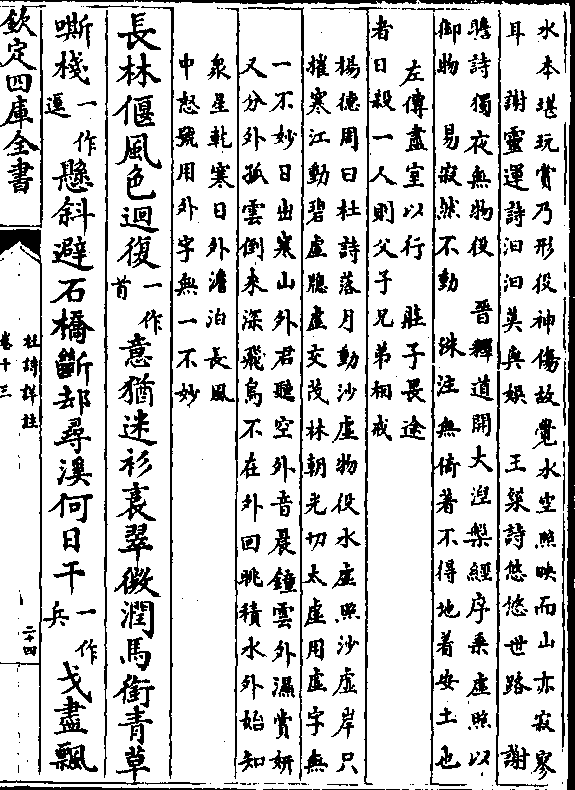 水本堪玩賞乃形役神傷故覺水空照映而山亦寂寥
耳　謝靈運詩汩汩莫與娛　王粲詩悠悠世路　謝
瞻詩獨夜無物役　晉釋道開大涅槃經序乘虛照以
御物　易寂然不動　洙注無倚著不得地着安土也
左傳盡室以行　莊子畏途
者日殺一人則父子兄弟相戒
楊德周曰杜詩落月動沙虛物役水虛照沙虛岸只
摧寒江動碧虛聽虛交茂林朝光切太虛用虛字無
一不妙日出寒山外君聽空外音晨鐘雲外濕賞妍
又分外孤雲倒來深飛鳥不在外回眺積水外始知
衆星乾寒日外澹泊長風
中怒號用外字無一不妙
長林偃風色迴復一作首意猶迷衫裛翠微潤馬銜青草
嘶棧一作逕懸斜避石橋斷却尋溪何日干一作兵戈盡飄
欽定四庫全書
杜詩詳註
卷十三
二十四